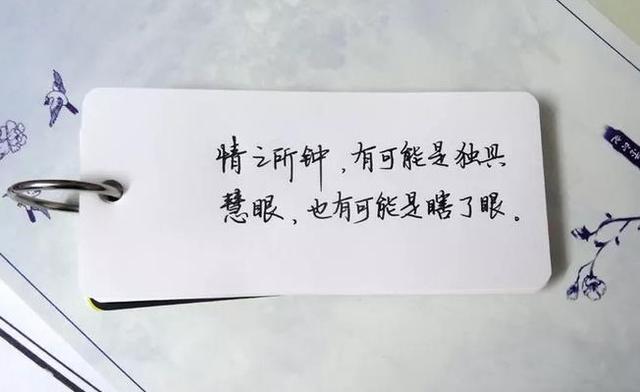 情之所钟，有可能是独具
慧眼，也有可能是瞎了眼。